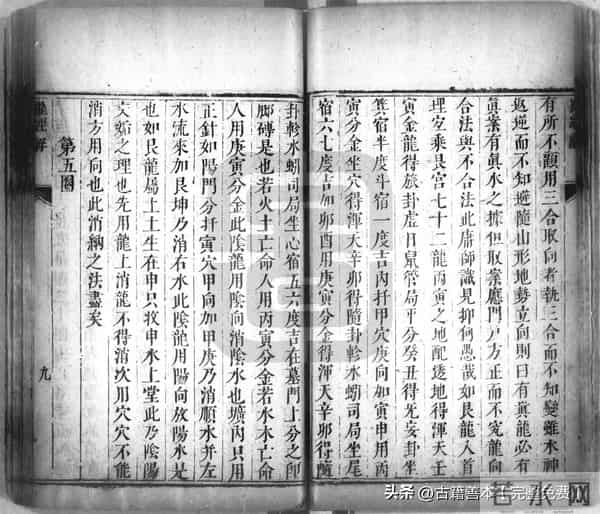 有所不顧用三合取向者執三合而不知變雖水神
返逆而不知避隨山形地勢立向則曰有眞龍必有
眞案有眞水之據但取案應門戶方正而不究龍向
合法與不合法此庸師識見抑何愚哉如艮龍入首
理宜乘艮宮七十二龍丙寅之地配透地得渾天壬
寅金龍得旅卦虛日鼠管局平分癸丑得无妄卦坐
箕宿半度斗宿一度吉內扦甲穴庚向加寅申用丙
寅分金坐穴得渾天辛卯得隨卦軫水蚓司局坐尾
宿六七度吉如卯酉用庚寅分金得渾天辛卯得隨
卦軫水蚓司局坐心宿五六度吉在墓門上分之卽
廊磚是也若火土亡命人用丙寅分金若水木亡命
人用庚寅分金此陰龍用陰向消陰水也壙內只用
正針如陽門分扦寅穴甲向加甲庚乃消順水并左
水流來加艮坤乃消右水此陰龍用陽向放陽水是
也如艮龍屬土土生在申只收申水上堂此乃陰陽
交姤之理也先用龍上消龍不得消次用穴穴不能
消方用向也此消納之法盡矣
第五圖
九
头条 @古籍善本(完整免费)